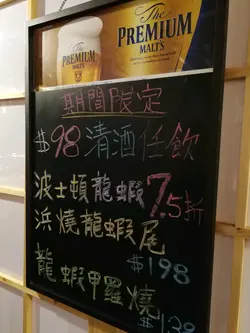 The
PREMIUM
MALT'S
The
PREMIUM
MALT'S
期間限定
$98清酒任飲
波士頓龍蝦7.5折
浜燒龍蝦尾
$198
龍蝦甲羅燒
$128